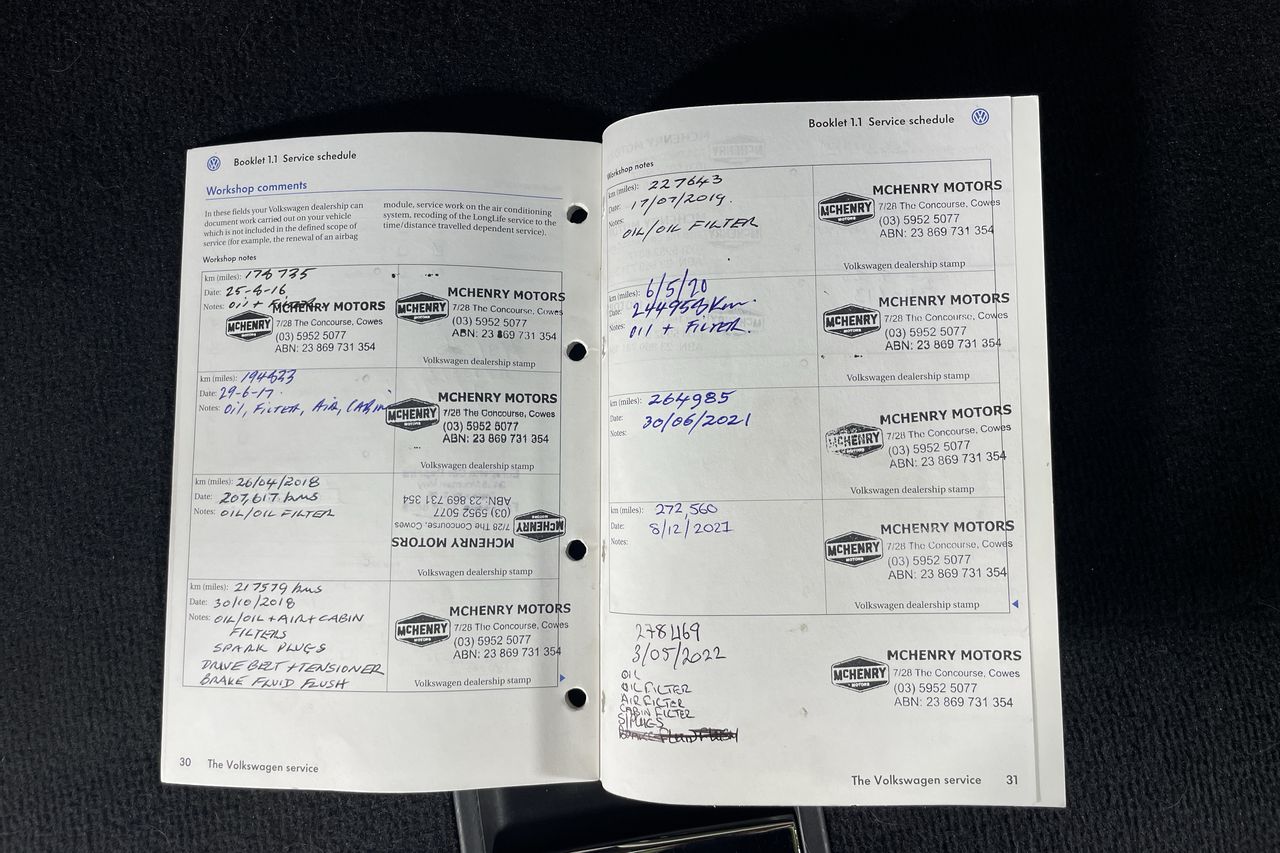 Booklet 1.1 Service schedule
Workshop comments
In these fields your Volkswagen dealership can
document work carried out on your vehicle
which is not included in the defined scope of
service (for example, the renewal of an airbag
module, service work on the air conditioning
system, recoding of the LongLife service to the
time/distance travelled dependent service).
Workshop notes
km (miles):
Date: 25-8-16
Notes: Oil + FILTER
MCHENRY MOTORS
MCHENRY
MOTORS
7/28 The Concourse, Cowes
(03) 5952 5077
ABN: 23 869 731 354
MCHENRY MOTORS
MCHENRY
MOTORS
7/28 The Concourse, Cowes
(03) 5952 5077
ABN: 23 869 731 354
Volkswagen dealership stamp
km (miles):
Date: 29-6-17
Notes: Oil, FILTER, AIR, CABIN
MCHENRY MOTORS
MCHENRY
MOTORS
7/28 The Concourse, Cowes
(03) 5952 5077
ABN: 23 869 731 354
Volkswagen dealership stamp
km (miles): 26/04/2018
Date: 207,617 kms
Notes: OIL/OIL FILTER
MCHENRY MOTORS
MCHENRY
MOTORS
7/28 The Concourse, Cowes
(03) 5952 5077
ABN: 23 869 731 354
Volkswagen dealership stamp
km (miles): 217579 kms
Date: 30/10/2018
Notes: OIL/OIL+AIR+CABIN
FILTERS
SPARK PLUGS
DRIVE BELT + TENSIONER
BRAKE FLUID FLUSH
MCHENRY MOTORS
MCHENRY
MOTORS
7/28 The Concourse, Cowes
(03) 5952 5077
ABN: 23 869 731 354
Volkswagen dealership stamp
30 The Volkswagen service
Booklet 1.1 Service schedule
Workshop notes
km (miles): 227643
Date: 17/07/2019.
Notes:
OIL/OIL FILTER
MCHENRY MOTORS
MCHENRY
MOTORS
7/28 The Concourse, Cowes
(03) 5952 5077
ABN: 23 869 731 354
Volkswagen dealership stamp
km (miles): 6/5/20
Date: 244958 Km.
Notes: Oil + FILTER.
MCHENRY MOTORS
MCHENRY
MOTORS
7/28 The Concourse, Cowes
(03) 5952 5077
ABN: 23 869 731 354
Volkswagen dealership stamp
km (miles): 264985
Date: 30/06/2021
Notes:
MCHENRY MOTORS
MCHENRY
MOTORS
7/28 The Concourse, Cowes
(03) 5952 5077
ABN: 23 869 731 354
Volkswagen dealership stamp
km (miles): 272,560
Date: 8/12/2021
Notes:
MCHENRY MOTORS
MCHENRY
MOTORS
7/28 The Concourse, Cowes
(03) 5952 5077
ABN: 23 869 731 354
Volkswagen dealership stamp
278469
3/05/2022
OIL
OIL FILTER
AIR FILTER
CABIN FILTER
S/PLUGS
BRAKE FLUID FLUSH
MCHENRY MOTORS
MCHENRY
MOTORS
7/28 The Concourse, Cowes
(03) 5952 5077
ABN: 23 869 731 354
The Volkswagen service 31